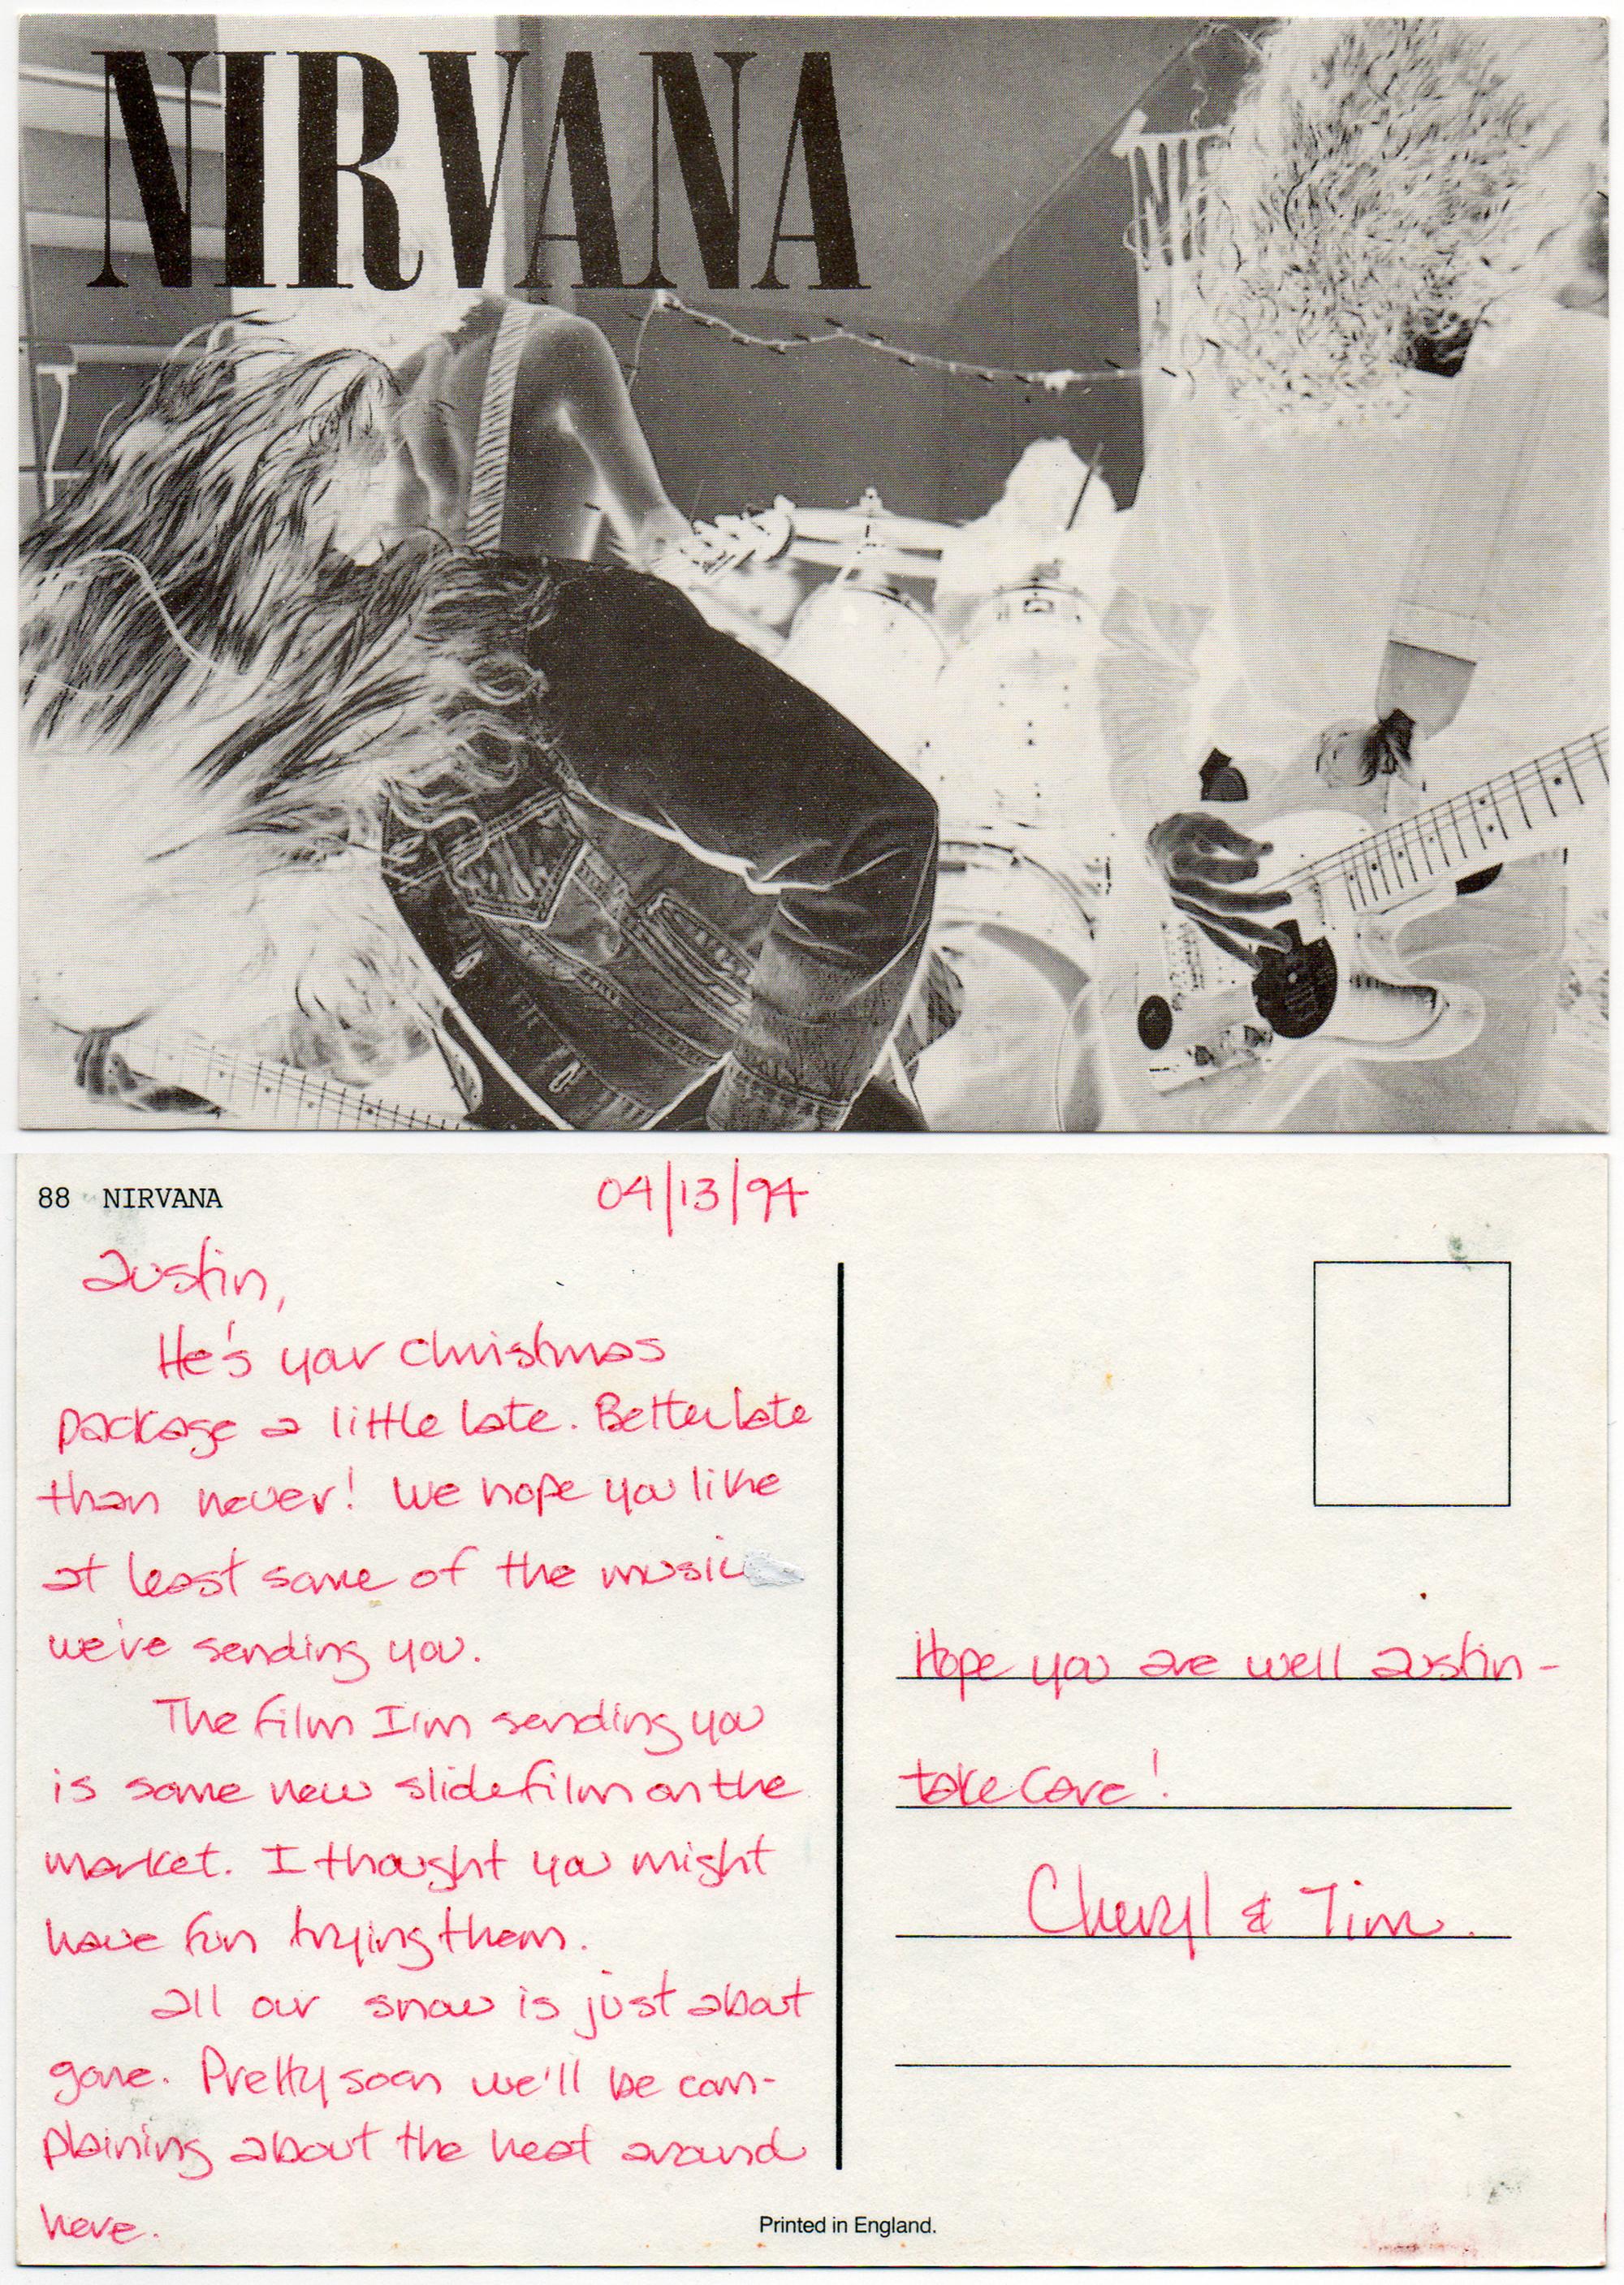 NIRVANA
88 NIRVANA
04/13/94
Austin,
He's your christmas
package a little late. Better late
than never! We hope you like
at least some of the music
we've sending you.
The film I'm sending you
is some new slide film on the
market. I thought you might
have fun trying them.
All our snow is just about
gone. Pretty soon we'll be com-
plaining about the heat around
here.
Hope you are well Austin -
take care!
Cheryl & Tim.
Printed in England.